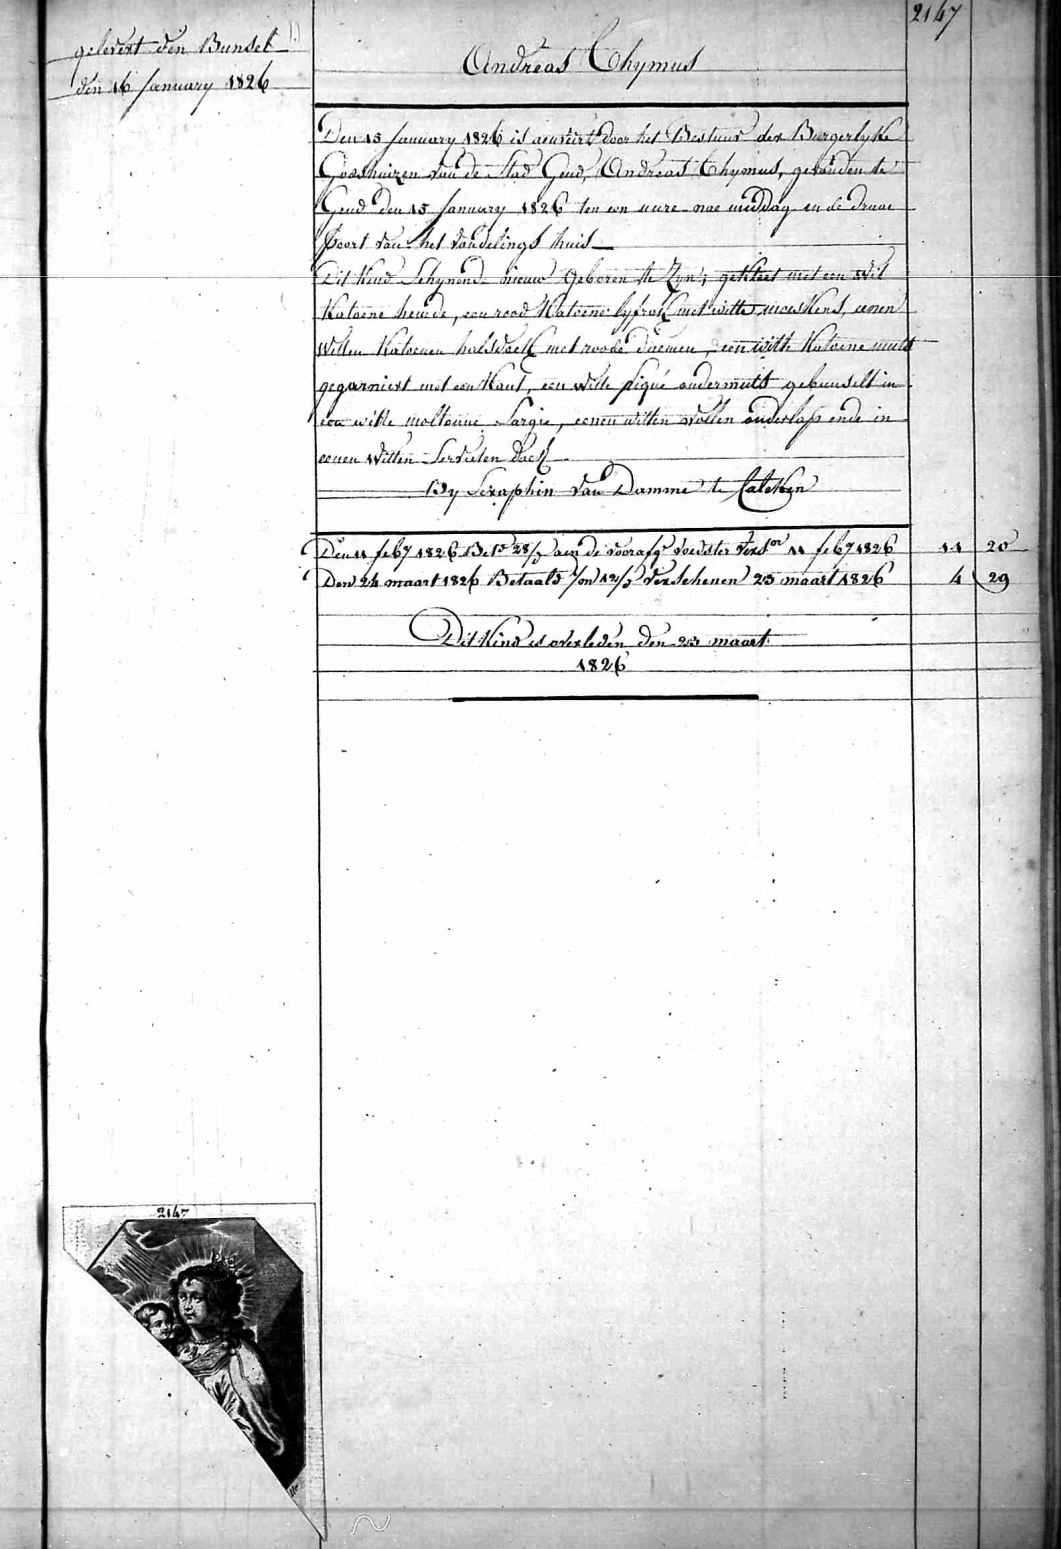 2147
gelevert den Bunsel
den 16 January 1826
Andreas Thymus
Den 15 January 1826 is aenveirt door het Bestuur der Burgerlyke
Godshuizen van de Stad Gend, Andreas Thymus, gevonden te
Gend den 15 January 1826 ten een uure nae middag in de draai
Poort van het vondelings huis
Dit Kind Schynend nieuw geboren te Zyn; gekleet met een wit
Katoene hemde, een rood Katoene lyfrok met witte moeskens, eenen
Witten Katoenen halsdoek met roode draemen, een witte Katoene muts
gegarniert met een Kant, een witte piqué ondermuts gebunselt in
een witte moltonne Sargie, eenen witten wollen onderlap ende in
eenen Witten Servieten doek
By Seraphin Van Damme te Calcken
Den 11 feb 1826 Bet 28/ aen de voorafg Voedster Vers 11 feb 1826 11 20
Den 24 maart 1826 Betaald 12/ Verschenen 23 maart 1826 4 29
Dit Kind is overleden den 23 maart
1826
2147